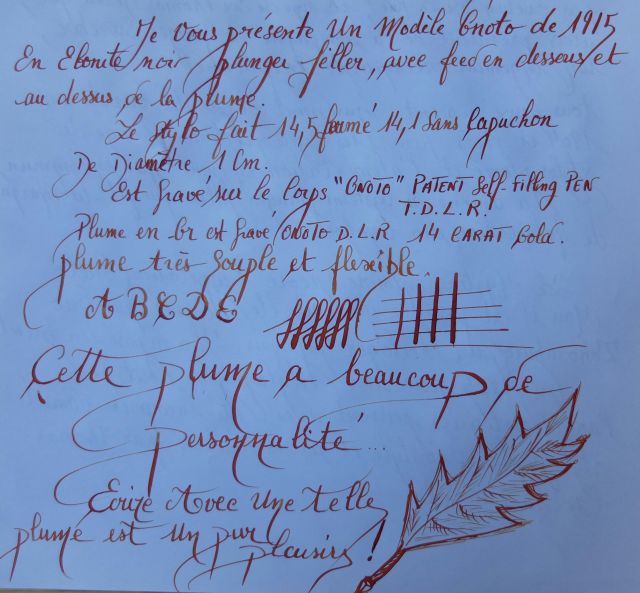 Je Vous présente Un Modèle Onoto de 1915
En Ebonite noir plunger filler, avec feed en dessous et
au dessus de la plume.
Le stylo fait 14,5 fermé 14,1 Sans Capuchon
De Diamètre 1 Cm.
Est Gravé sur le Corps "ONOTO" PATENT Self-Filling PEN
T.D.L.R.
Plume en Or est Gravé ONOTO D.L.R 14 CARAT Gold.
plume très Souple et flexible.
A B C D E
Cette plume a beaucoup de
personnalité...
Ecrire Avec Une telle
plume est Un pur
plaisir !